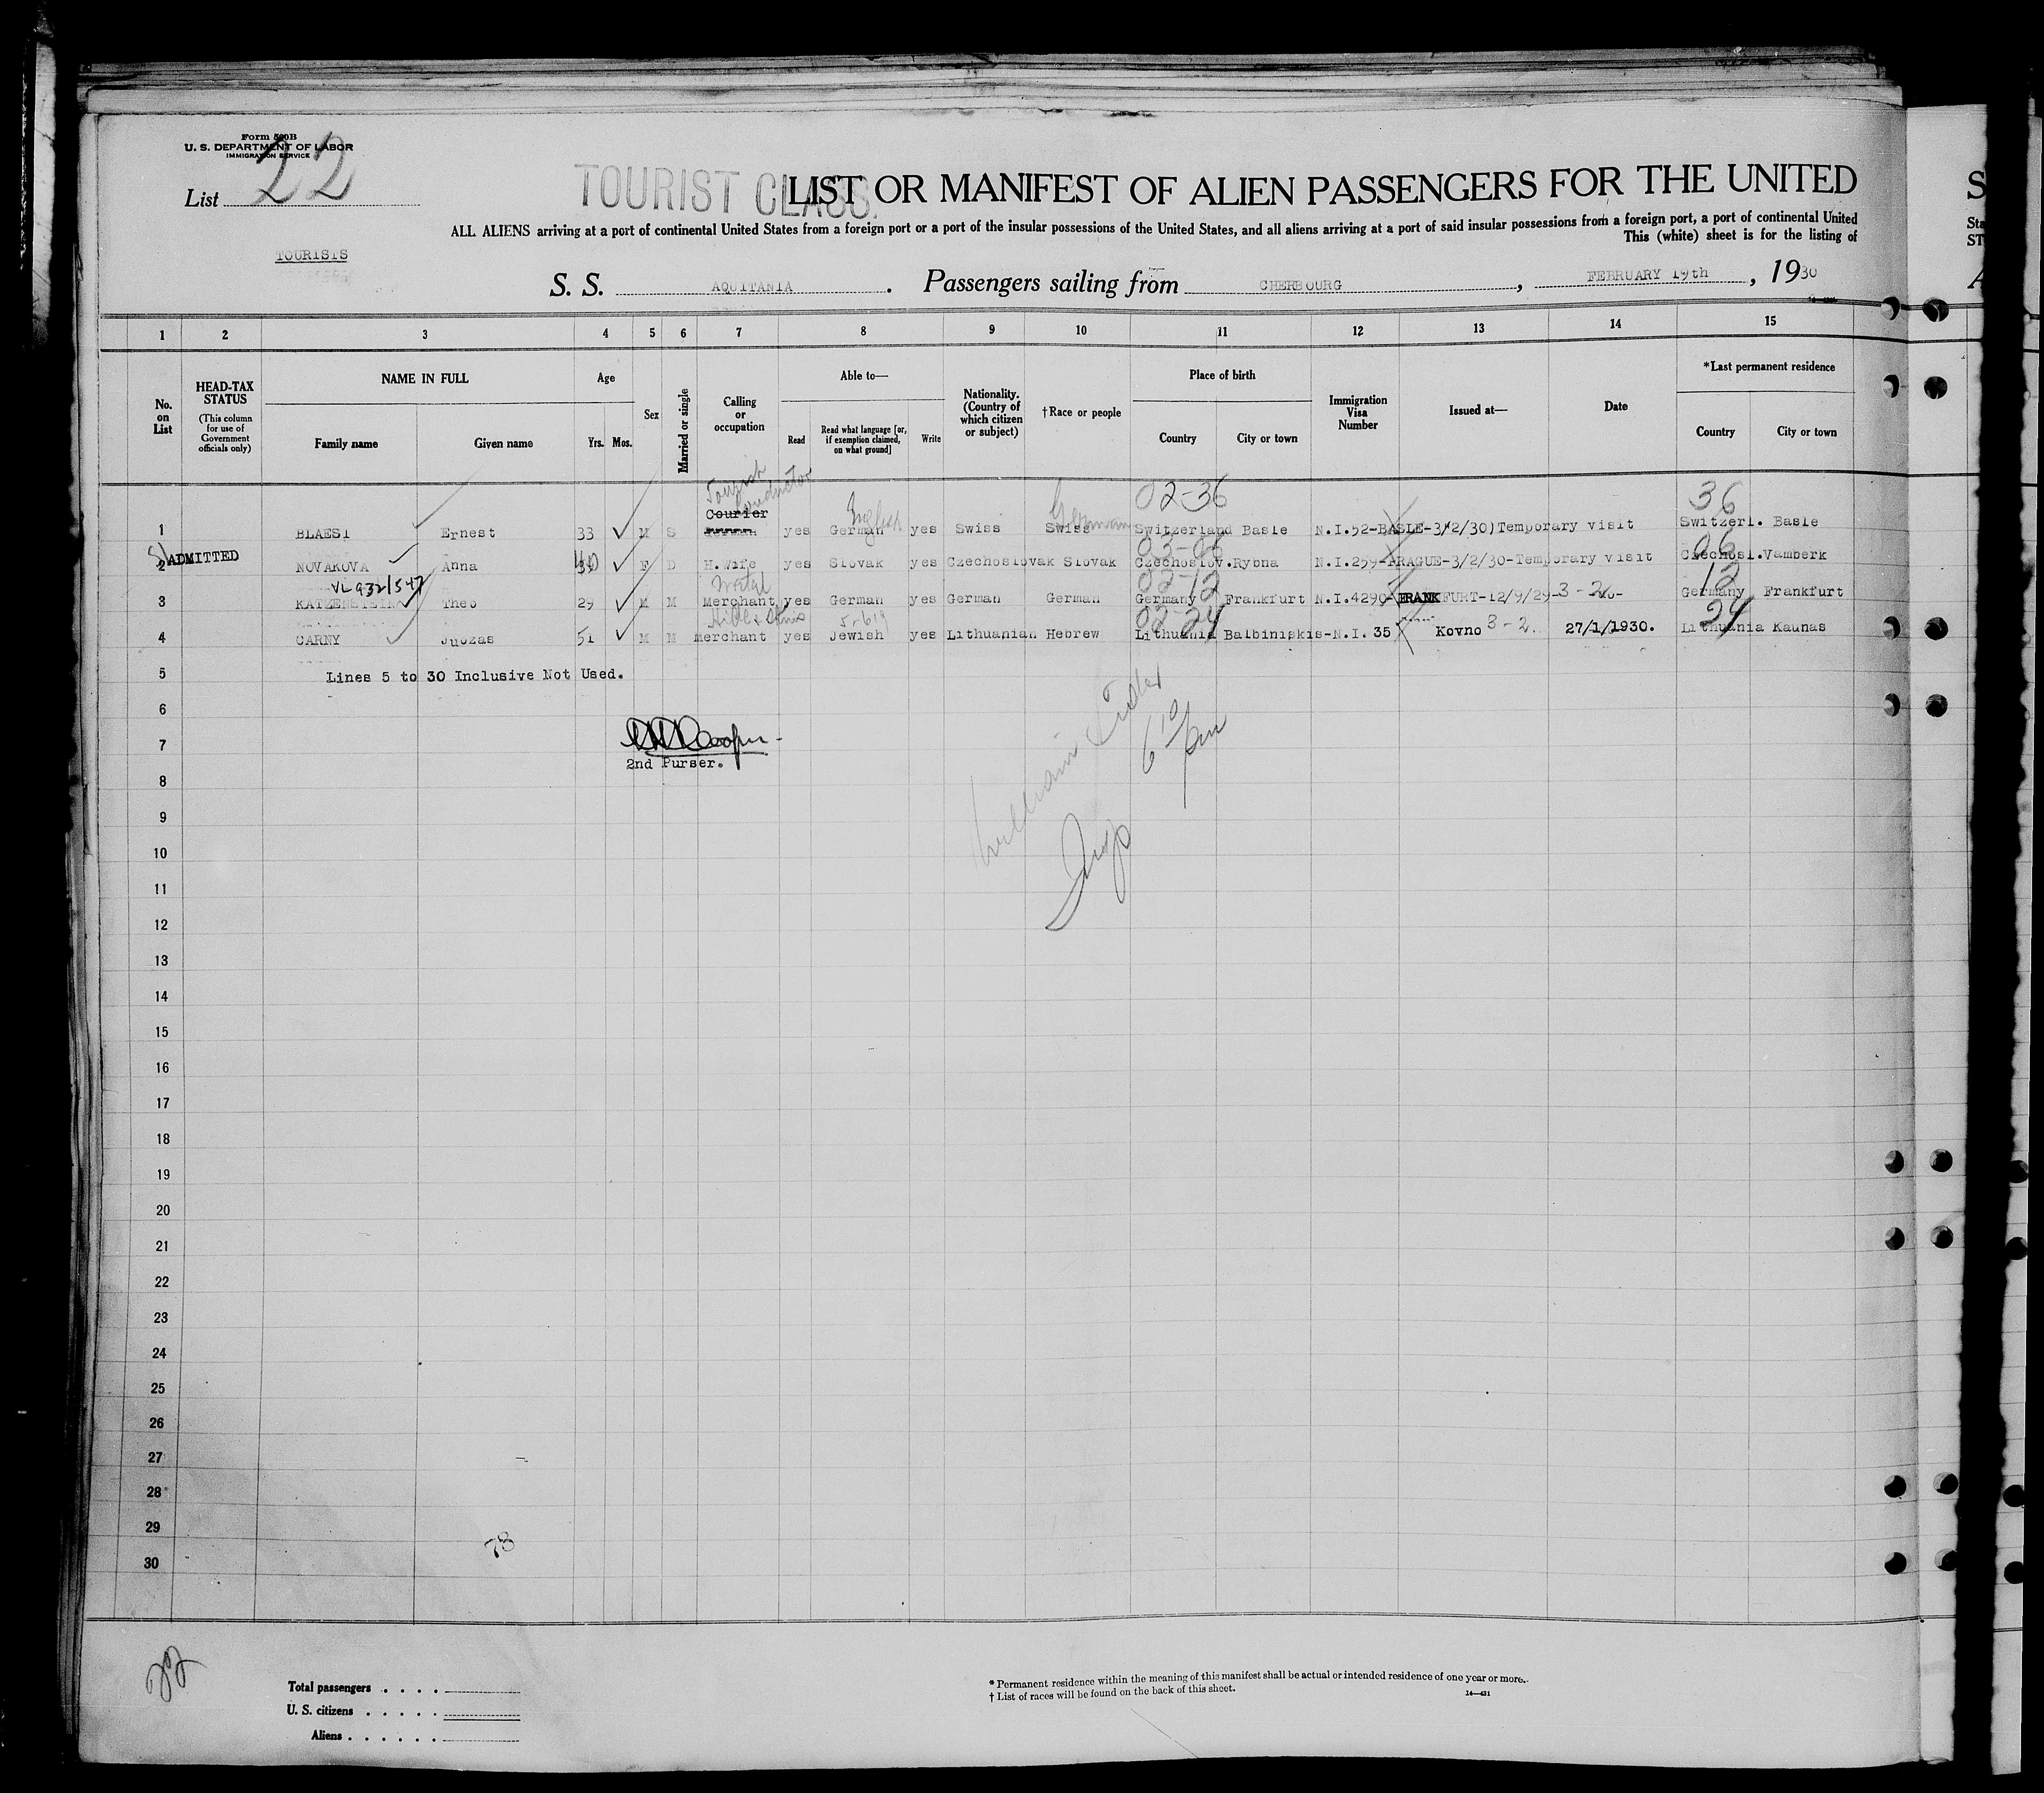 Form 500B
U. S. DEPARTMENT OF LABOR
IMMIGRATION SERVICE
List 22
TOURIST CLASS.
LIST OR MANIFEST OF ALIEN PASSENGERS FOR THE UNITED
ALL ALIENS arriving at a port of continental United States from a foreign port or a port of the insular possessions of the United States, and all aliens arriving at a port of said insular possessions from a foreign port, a port of continental United
This (white) sheet is for the listing of
TOURISTS
S. S. AQUITANIA. Passengers sailing from CHERBOURG, FEBRUARY 19th, 1930
1 2 3 4 5 6 7 8 9 10 11 12 13 14 15
No. on List
HEAD-TAX STATUS (This column for use of Government officials only)
NAME IN FULL
Family name Given name
Age
Yrs. Mos.
Sex
Married or single
Calling or occupation
Able to—
Read
Read what language [or, if exemption claimed, on what ground]
Write
Nationality. (Country of which citizen or subject)
†Race or people
Place of birth
Country City or town
Immigration Visa Number
Issued at—
Date
*Last permanent residence
Country City or town
Tourist Conductor English German 02-36 36
Courier
1 BLAESI Ernest 33 M S yes German yes Swiss Swiss Switzerland Basle N.I.52-BASLE-3/2/30)Temporary visit Switzerl. Basle
03-06 06
ADMITTED
2 NOVAKOVA Anna 40 F D H.Wife yes Slovak yes Czechoslovak Slovak Czechoslov.Rybna N.I.259-PRAGUE-3/2/30-Temporary visit Czechosl.Vamberk
VL 932/547 Metal 02-12 12
3 KATZENSTEIN Theo 29 M M Merchant yes German yes German German Germany Frankfurt N.I.4290-FRANKFURT-12/9/29- 3-2 Germany Frankfurt
02-24 24
4 CARNY Juozas 51 M M Merchant yes Jewish yes Lithuanian Hebrew Lithuania Balbiniskis-N.I. 35 Kovno 3-2. 27/1/1930. Lithuania Kaunas
5 Lines 5 to 30 Inclusive Not Used.
6
7
2nd Purser.
8
William
6 10/pm
Insp
9
10
11
12
13
14
15
16
17
18
19
20
21
22
23
24
25
26
27
28
29
78
30
22
Total passengers . . . .
U. S. citizens . . . . .
Aliens . . . . . .
* Permanent residence within the meaning of this manifest shall be actual or intended residence of one year or more.
† List of races will be found on the back of this sheet.
14—431